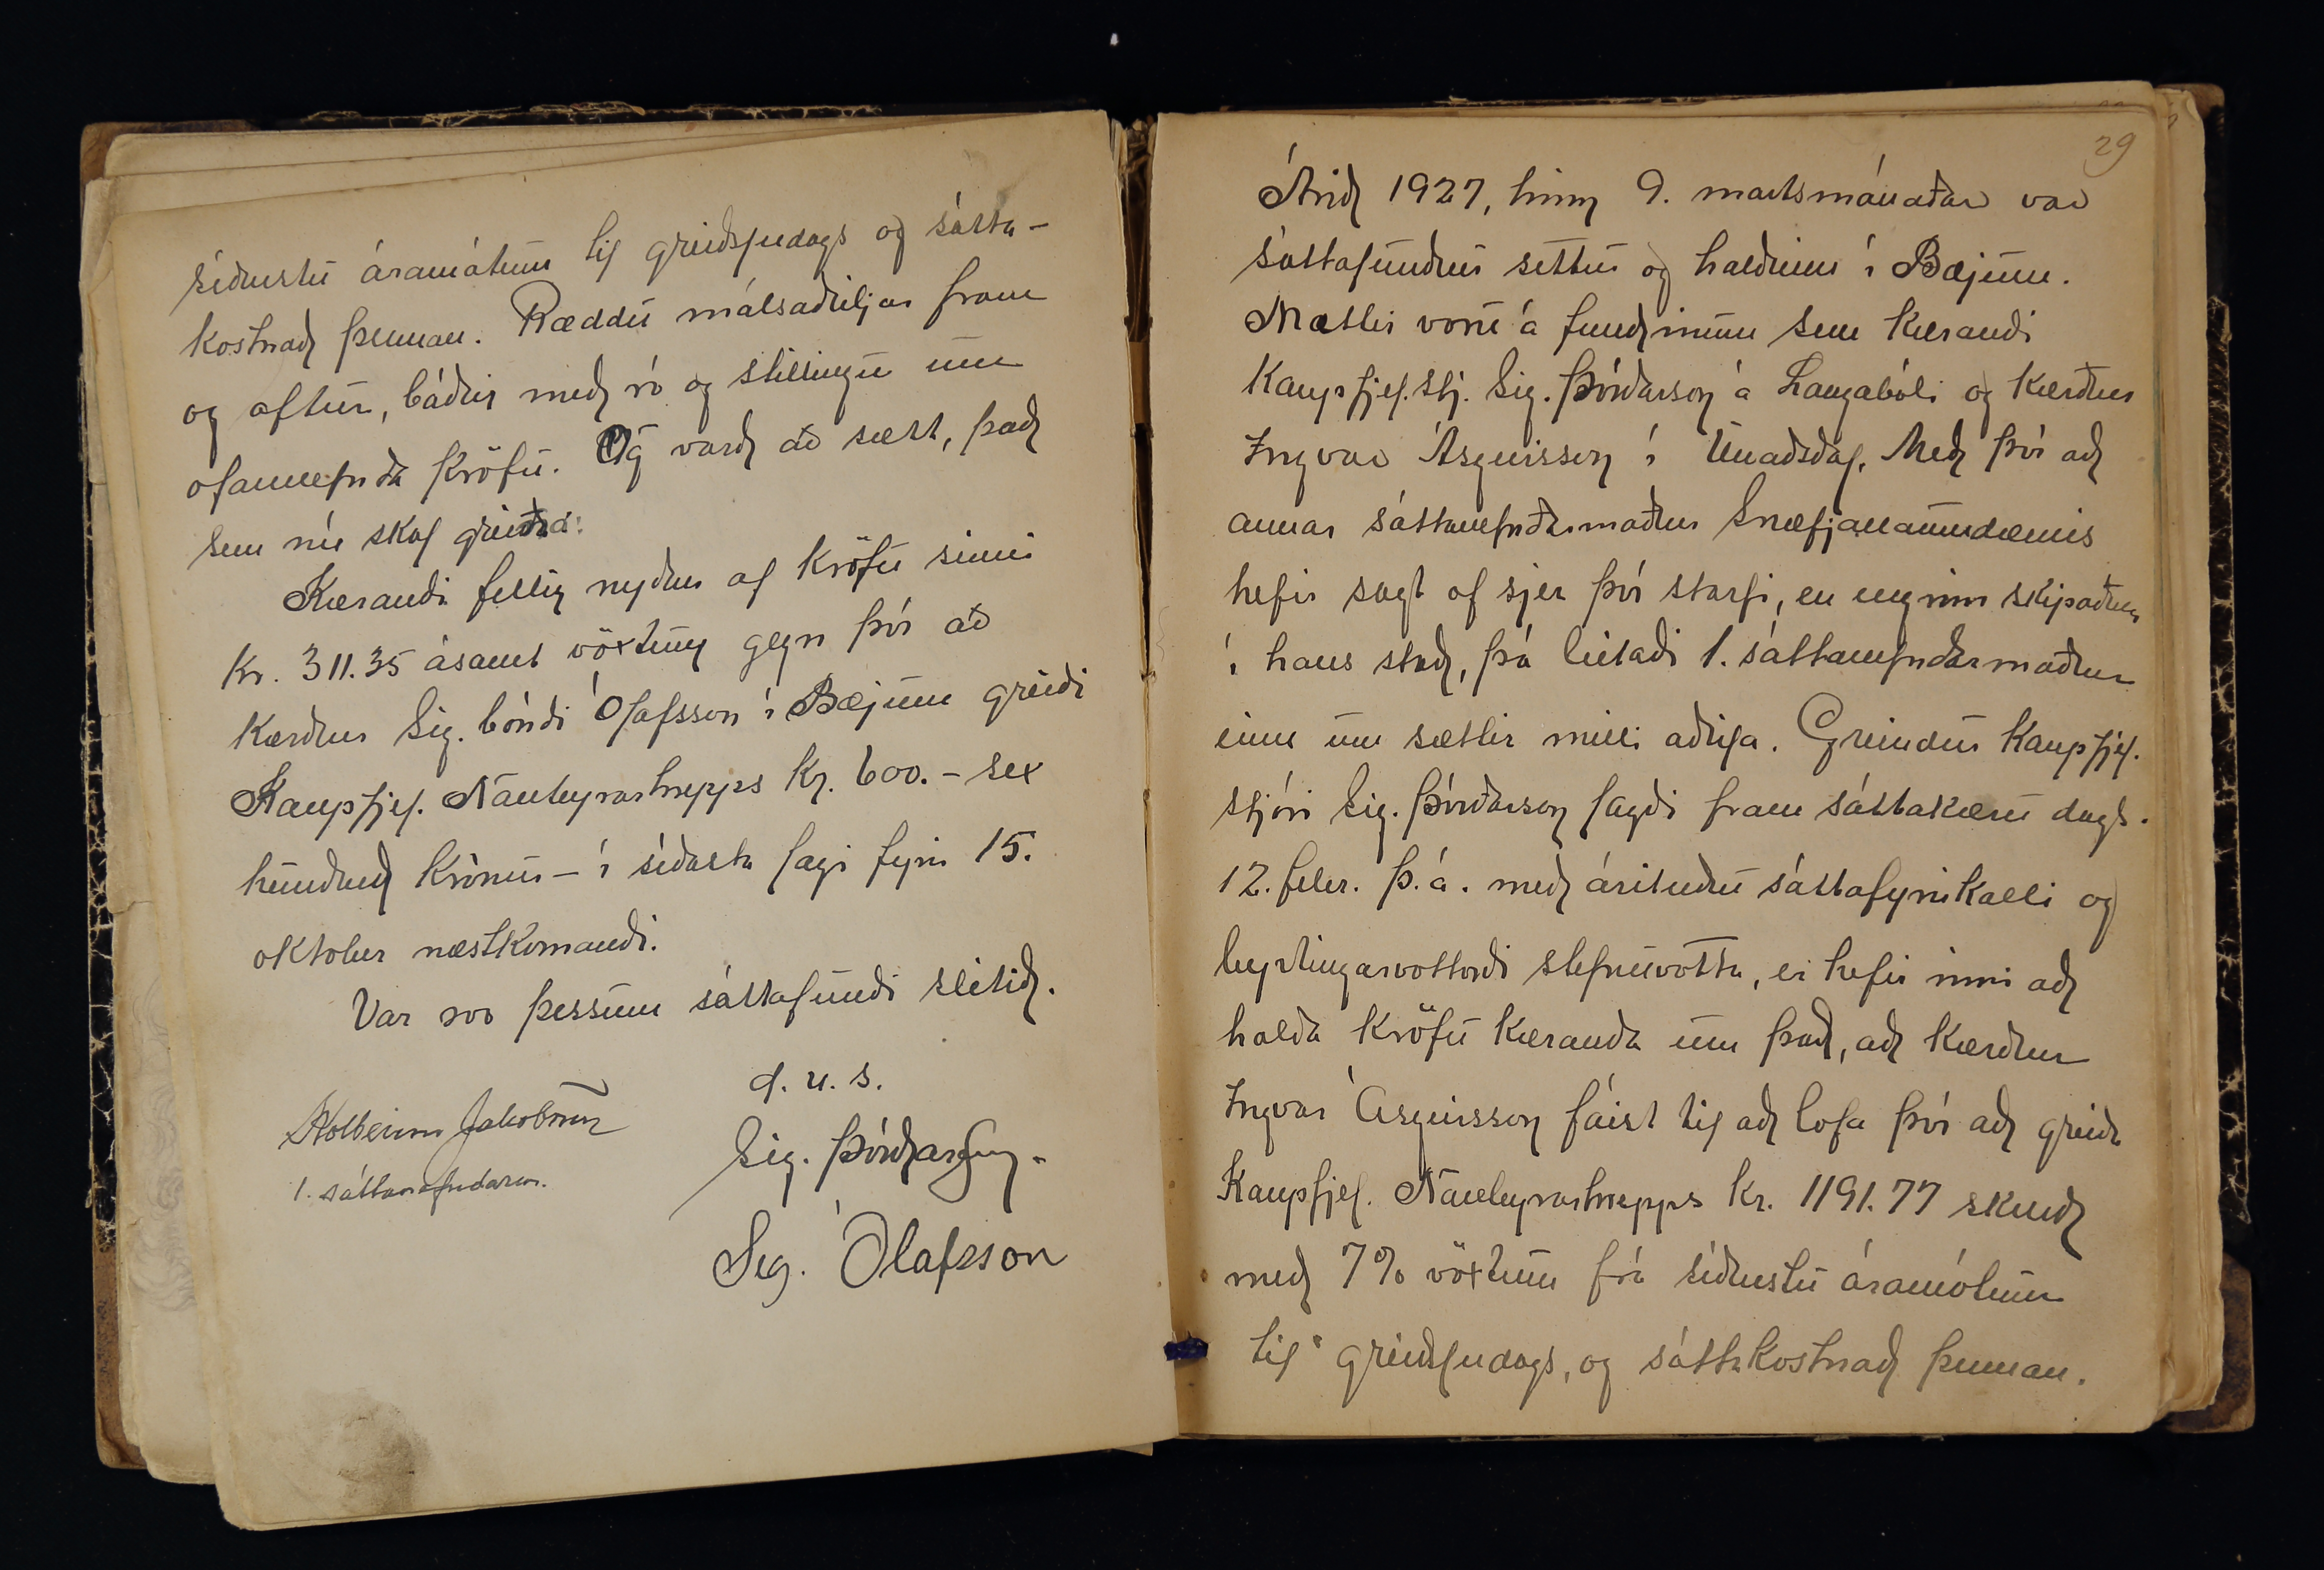 síðustu áramótum til greiðsludags og sátta-
kostnað þennan. Ræddu málsaðiljar fram
og aftur, báðir með ró og stillingu um
ofannefnda kröfu. Og varð að sætt, það
sem nú skal greina:
Kærandi fellir nyður af kröfu sinni
kr. 311.35 ásamt vöxtum gegn því að
kærður Sig. bóndi Ólafsson í Bæjum greiði
Kaupfjel. Nauteyrarhrepps kr. 600.- sex
hundruð krónur - í síðasta lagi fyrir 15.
oktober næstkomandi.
Var svo þessum sáttafundi slitið.
d. u. s.
Kolbeinn Jakobsson
1. sáttanefndarm.
Sig. Þórðarson.
Sig. Ólafsson
29
Árið 1927, hinn 9. martsmánaðar var
sáttafundur settur og haldinn í Bæjum.
Mættir voru á fundinum sem kærandi
Kaupfjel.stj. Sig. Þórðarson á Laugabóli og kærður
Ingvar Ásgeirsson í Unaðsdal. Með því að
annar sáttanefndarmaður Snæfjallaumdæmis
hefir sagt af sjer því starfi, en enginn skipaður
í hans stað, þá leitaði 1. sáttanefndarmaður
einn um sættir milli aðila. Greindur Kaupfjel.
stjóri Sig. Þórðarson lagði fram sáttakæru dags.
12. febr. þ.á. með árituðu sáttafyrirkalli og
byrtingarvottorði stefnuvotta, er hefir inni að
halda kröfu kæranda um það, að kærður
Ingvar Ásgeirsson fáist til að lofa því að greiða
Kaupfjel. Nauteyrarhrepps kr. 1191.77 skuld
með 7% vöxtum frá síðustu áramótum
til greiðsludags, og sáttakostnað þennan.